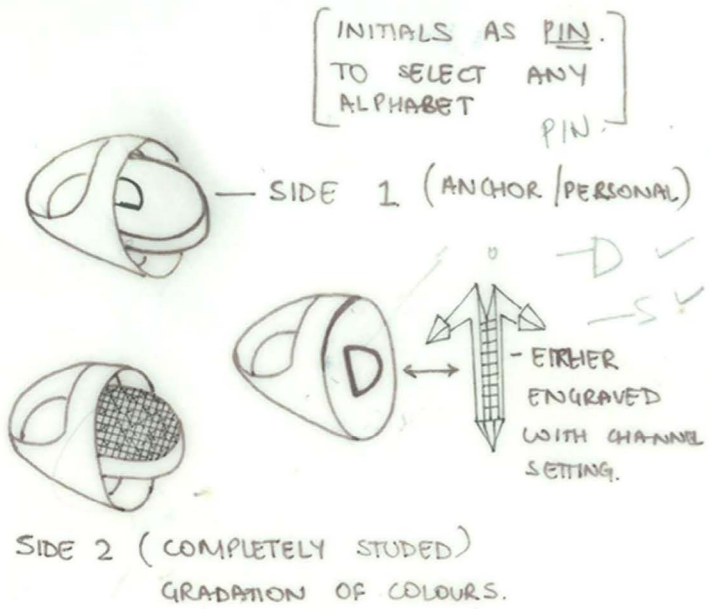 INITIALS AS PIN.
TO SELECT ANY
ALPHABET
PIN.
D
SIDE 1 (ANCHOR/PERSONAL)
D
S
D
- EITHER
ENGRAVED
WITH CHANNEL
SETTING.
SIDE 2 (COMPLETELY STUDED)
GRADATION OF COLOURS.